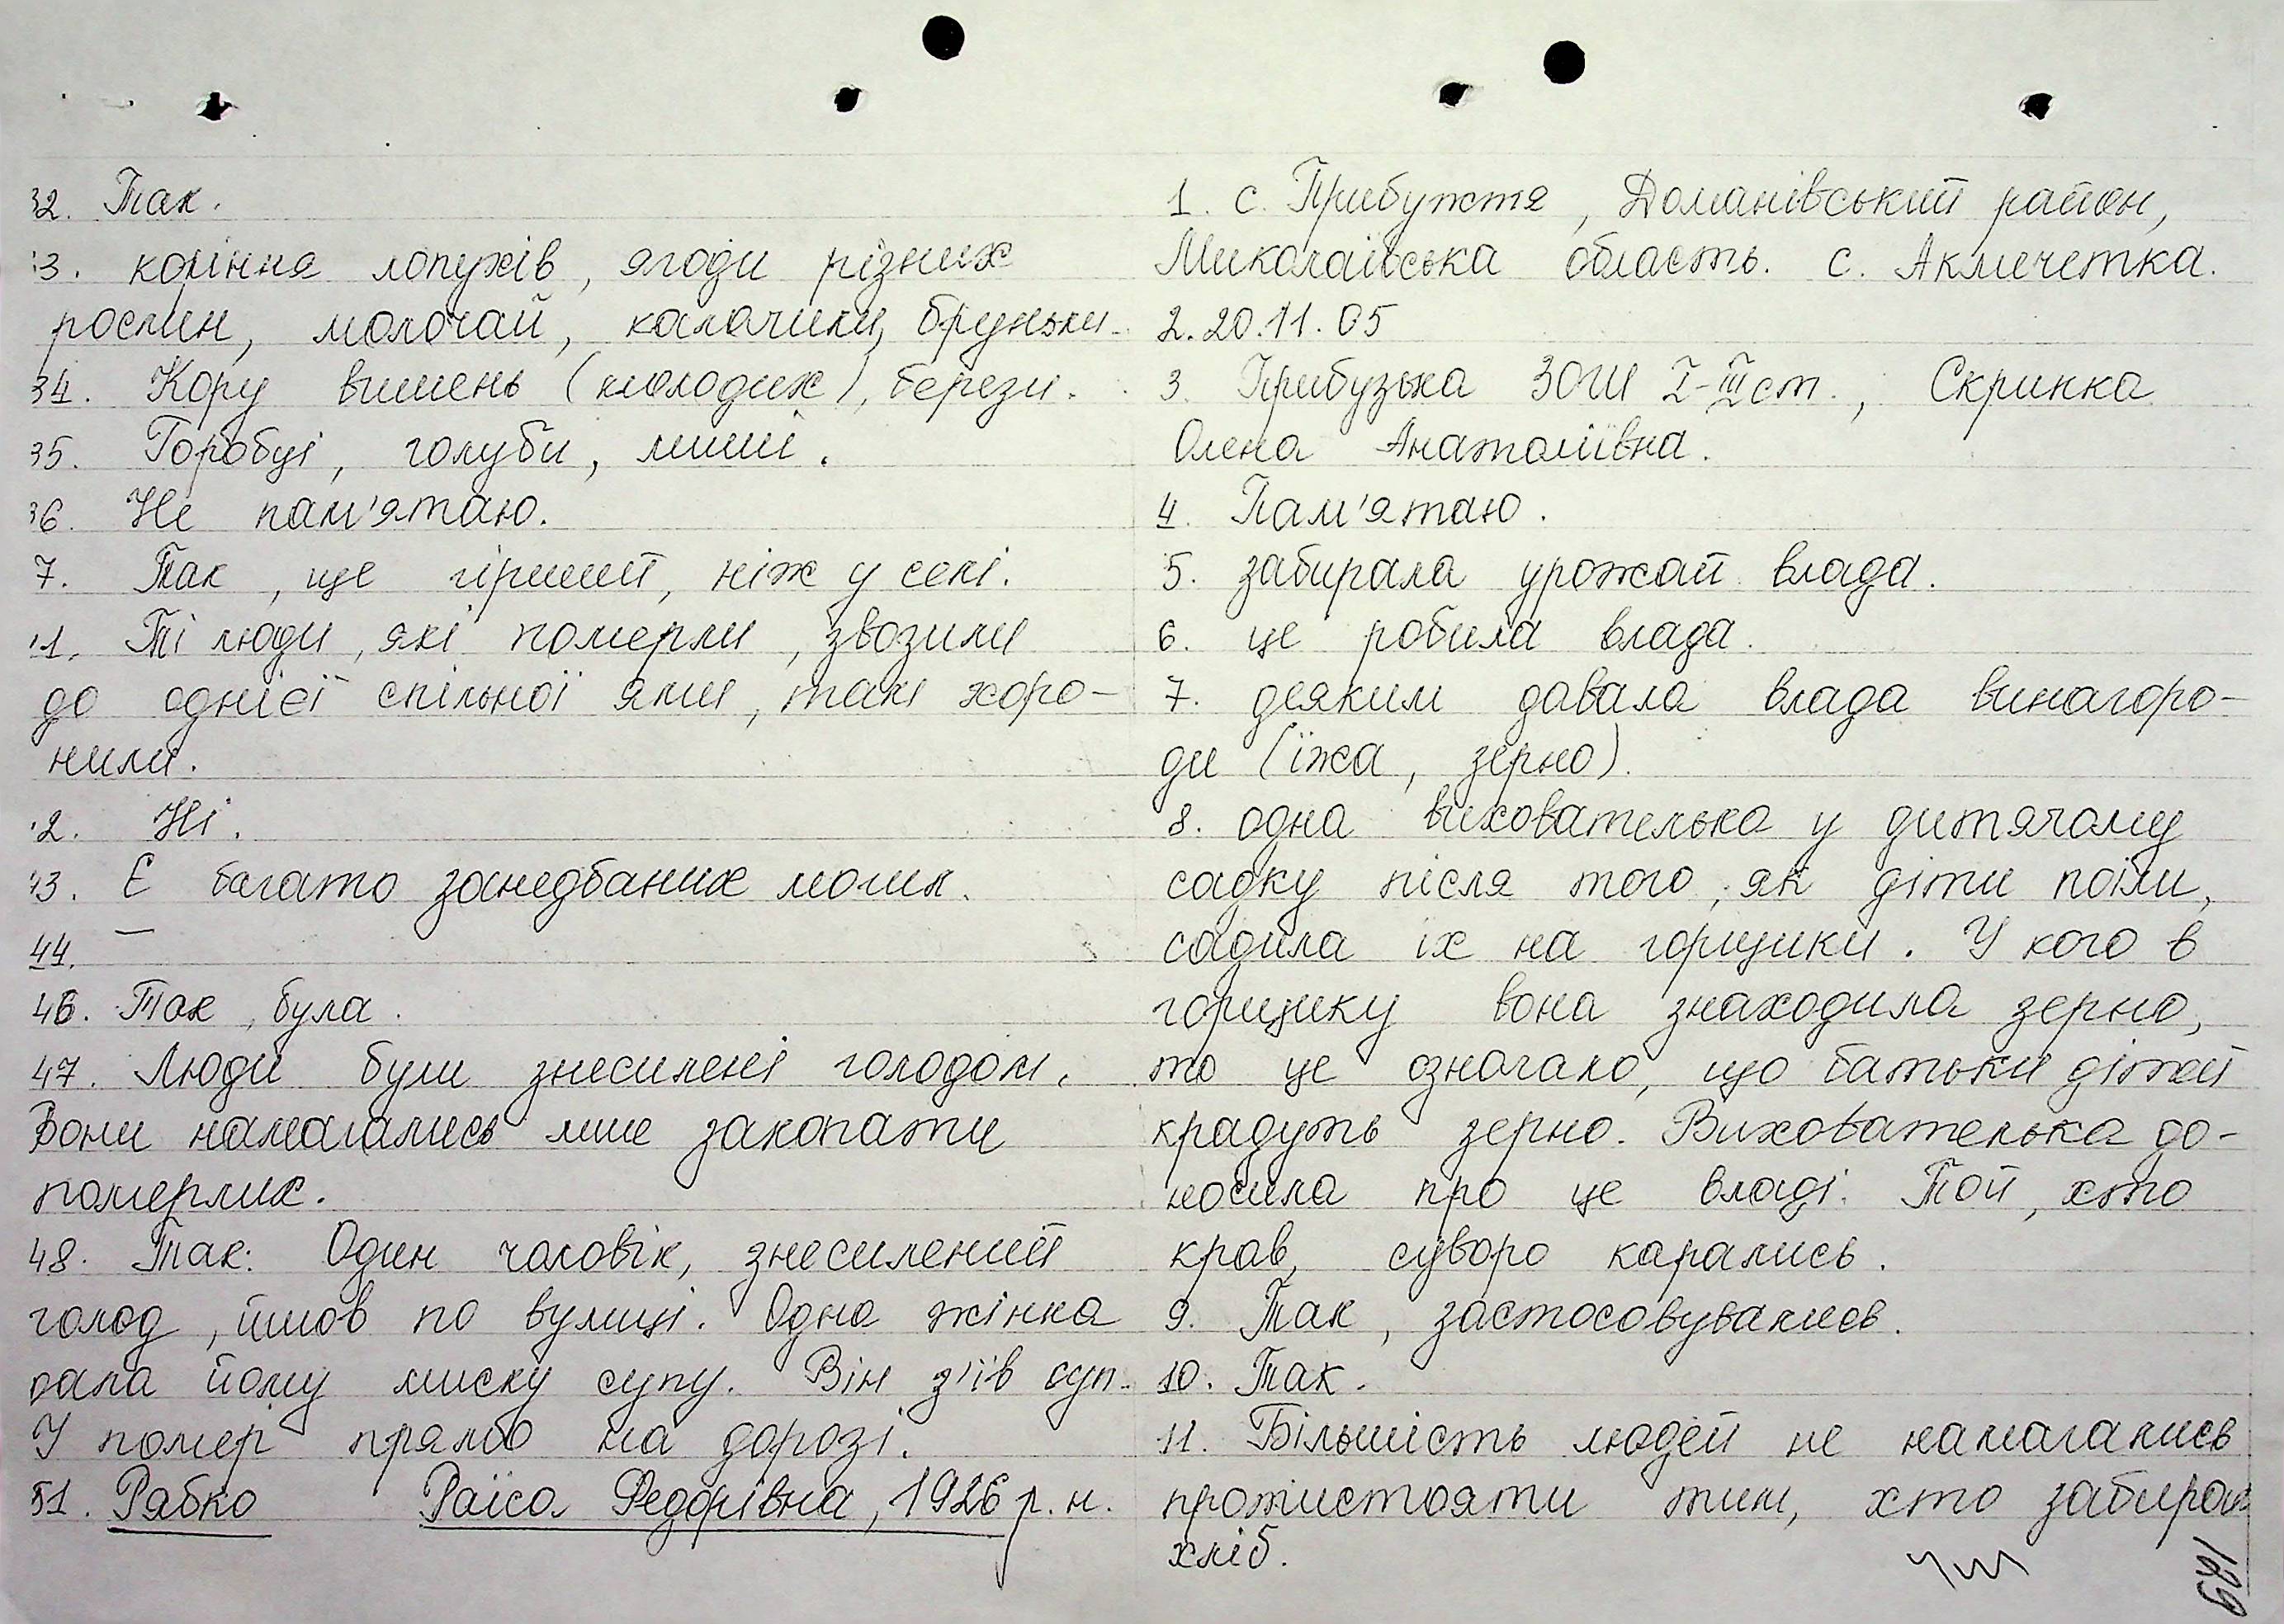 32. Так.
3. коріння лопухів, ягоди різних
рослин, молочай, калачики, бруньки.
34. Кору вишень (молодих), берези.
35. Горобці, голуби, миші.
36. Не пам'ятаю.
7. Так, ще гірший, ніж у селі.
1. Ті люди, які померли, звозили
до однієї спільної ями, там хоро-
нили.
2. Ні.
3. Є багато занедбаних могил.
44. —
46. Так, була.
47. Люди були знесилені голодом.
Вони намагались лише закопати
померлих.
48. Так. Один чоловік, знесилений
голод, йшов по вулиці. Одна жінка
дала йому миску супу. Він з'їв суп.
І помер прямо на дорозі.
51. Рябко Раїса Федорівна, 1926 р.н.
1. с. Прибужжя, Доманівський район,
Миколаївська область. с. Акмечетка.
2. 20.11.05
3. Прибузька ЗОШ I-III ст., Скринка
Олена Анатоліївна.
4. Пам'ятаю.
5. забирала урожай влада.
6. це робила влада.
7. деяким давала влада винагоро-
ди (їжа, зерно).
8. одна вихователька у дитячому
садку після того, як діти поїли,
садила їх на горщики. У кого в
горщику вона знаходила зерно,
то це означало, що батьки дітей
крадуть зерно. Вихователька до-
носила про це владі. Той, хто
крав, суворо карались.
9. Так, застосовувались.
10. Так.
11. Більшість людей не намагались
протистояти тим, хто забирав
хліб.
129